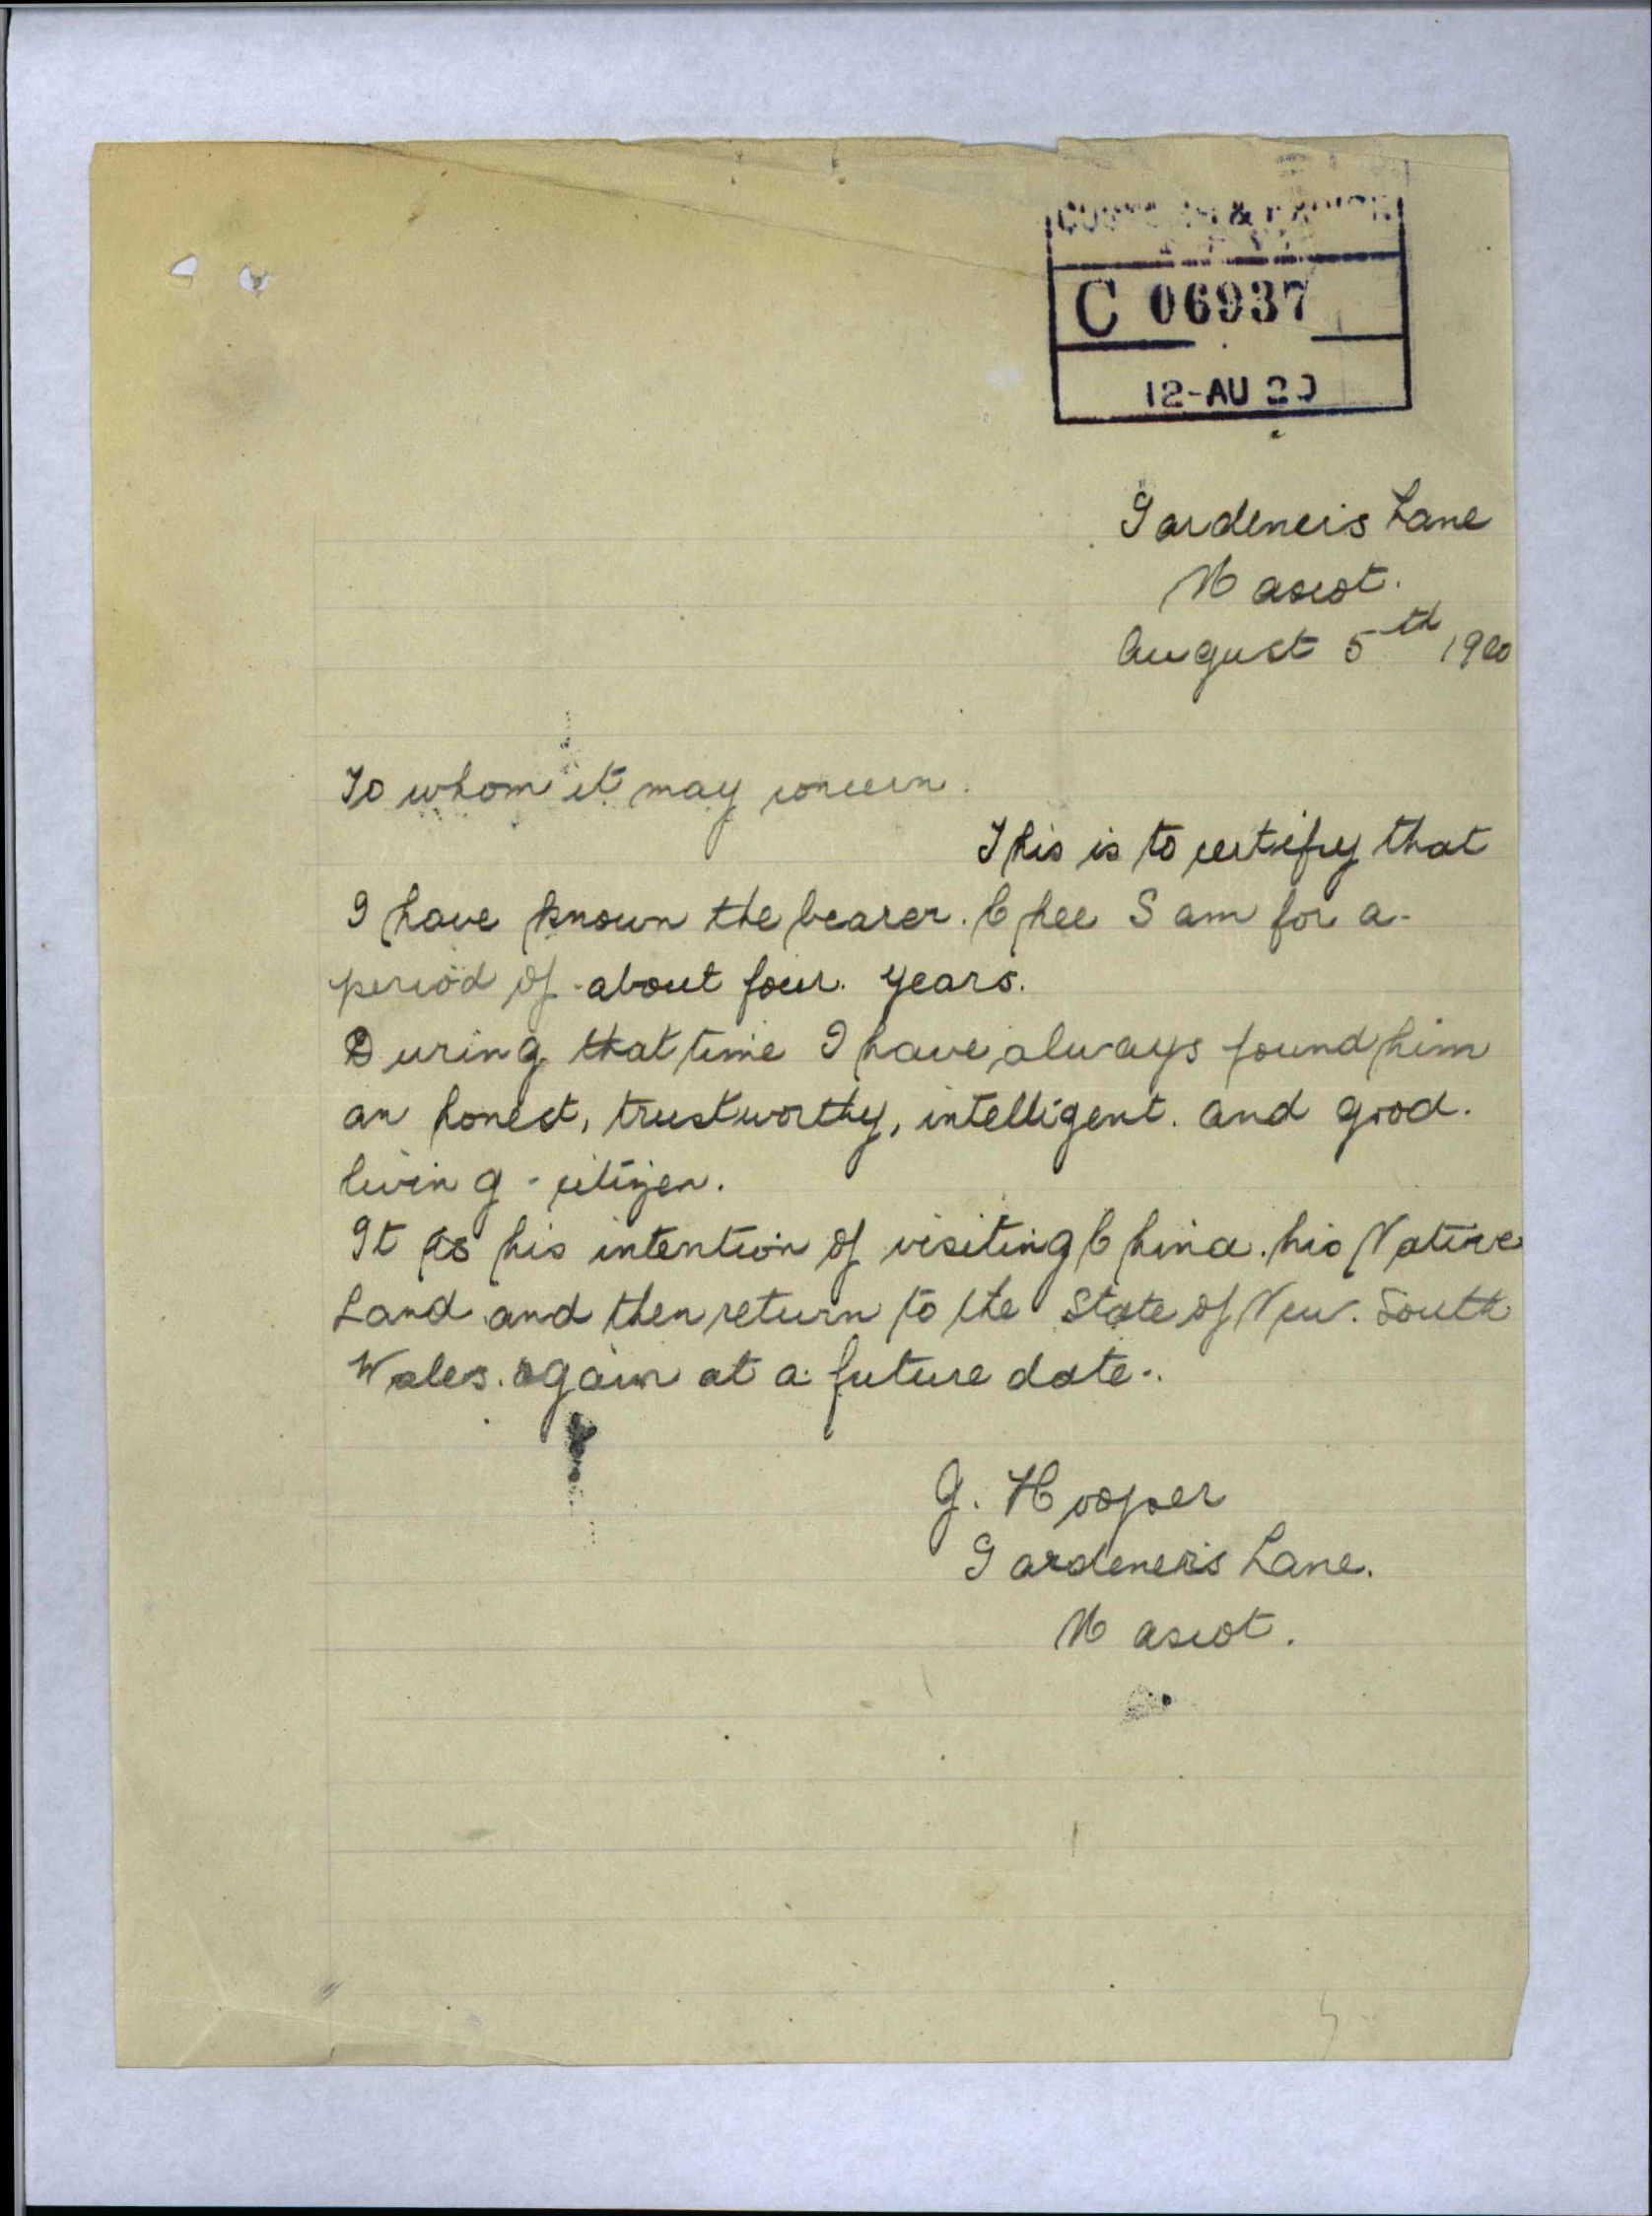 CUSTOMS & EXCISE
C 06937
12-AU 20
Gardener's Lane
Mascot.
August 5th 1920
To whom it may concern.
This is to certify that
I have known the bearer. Chee Sam for a
period of about four. years.
During that time I have always found him
an honest, trustworthy, intelligent. and good.
living - citizen.
It is his intention of visiting China. his Native
Land and then return to the State of New. South
Wales. again at a future date.
G. Hooper
Gardener's Lane.
Mascot.